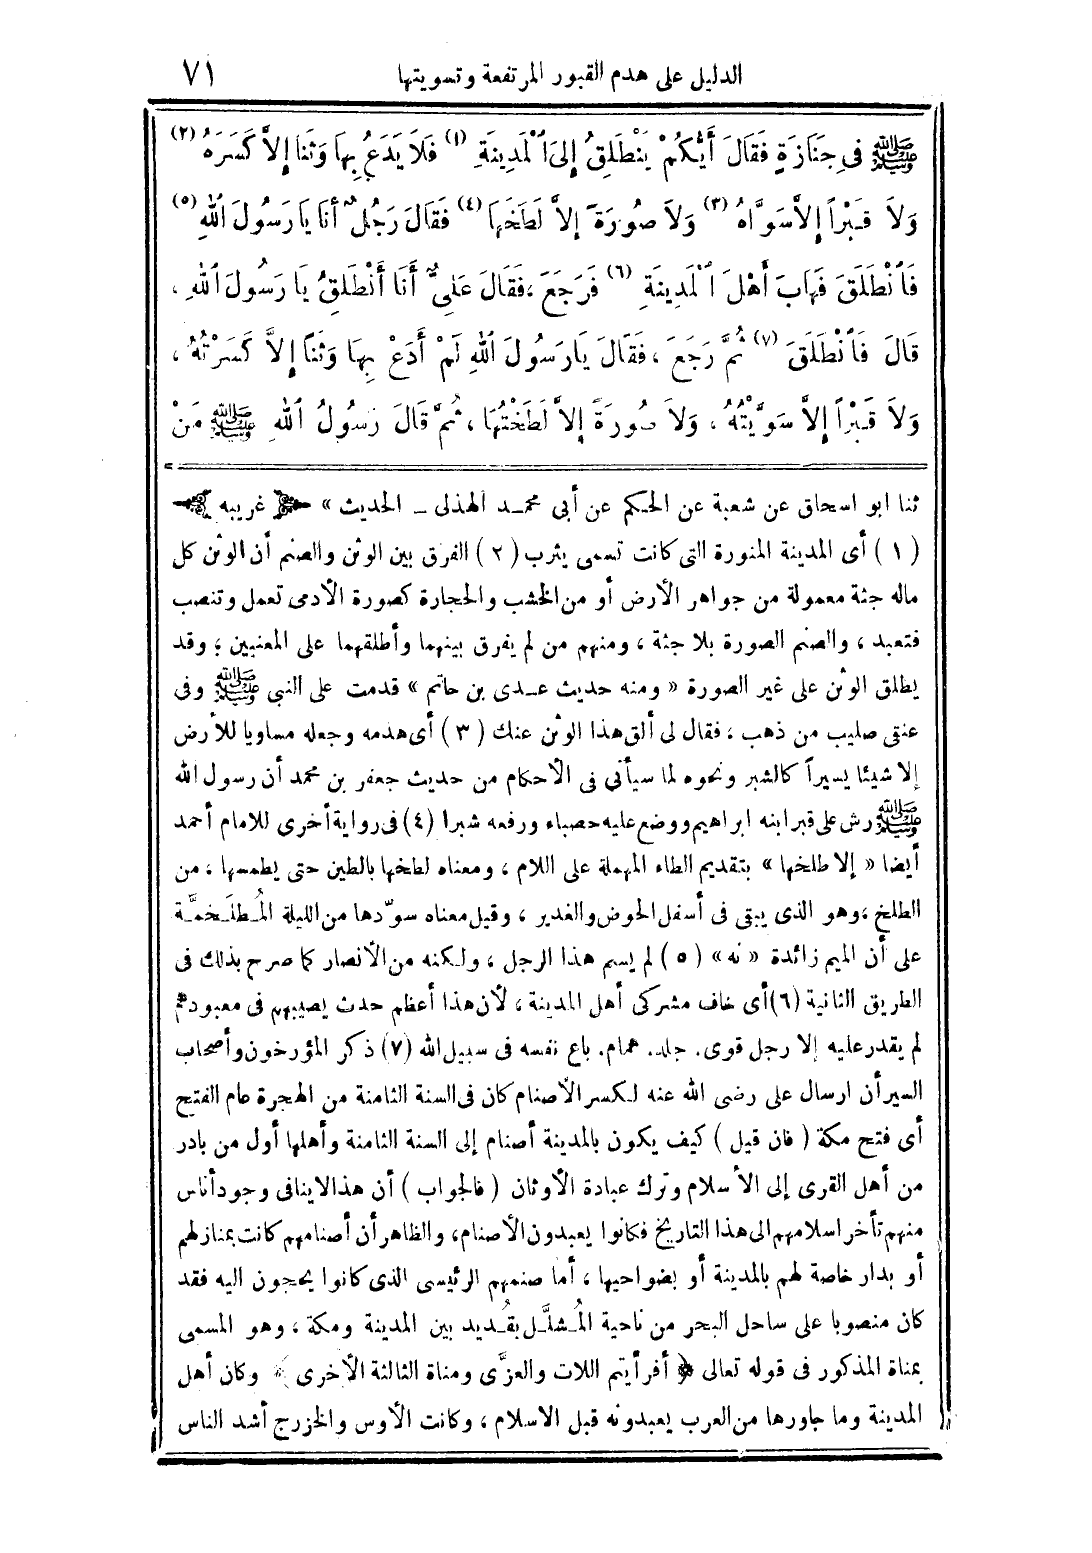 الدليل على هدم القبور المرتفعة وتسويتها ٧١
ﷺ فِى جَنَازَةٍ فَقَالَ أَيُّكُمْ يَنْطَلِقُ إِلَى ٱلْمَدِينَةِ (١) فَلَا يَدَعُ بِهَا وَثَنًا إِلاَّ كَسَرَهُ (٢)
وَلاَ قَبْرًا إِلاَّ سَوَّاهُ (٣) وَلاَ صُورَةً إِلاَّ لَطَخَهَا (٤) فَقَالَ رَجُلٌ أَنَا يَا رَسُولَ ٱللهِ (٥)
فَٱنْطَلَقَ فَهَابَ أَهْلَ ٱلْمَدِينَةِ (٦) فَرَجَعَ ، فَقَالَ عَلِىٌّ أَنَا أَنْطَلِقُ يَا رَسُولَ ٱللهِ ،
قَالَ فَٱنْطَلَقَ (٧) ثُمَّ رَجَعَ ، فَقَالَ يَارَسُولَ ٱللهِ لَمْ أَدَعْ بِهَا وَثَنًا إِلاَّ كَسَرْتُهُ ،
وَلاَ قَبْرًا إِلاَّ سَوَّيْتُهُ ، وَلاَ صُورَةً إِلاَّ لَطَخْتُهَا ، ثُمَّ قَالَ رَسُولُ ٱللهِ ﷺ مَنْ
ثنا ابو اسحاق عن شعبة عن الحكم عن أبى محمد الهذلى ــ الحديث » غريبه
(١) أى المدينة المنورة التى كانت تسمى يثرب (٢) الفرق بين الوثن والصنم أن الوثن كل
ماله جثة معمولة من جواهر الأرض أو من الخشب والحجارة كصورة الآدمى تعمل وتنصب
فتعبد ، والصنم الصورة بلا جثة ، ومنهم من لم يفرق بينهما وأطلقهما على المعنيين ؛ وقد
يطلق الوثن على غير الصورة « ومنه حديث عدى بن حاتم » قدمت على النبى ﷺ وفى
عنقى صليب من ذهب ، فقال لى ألق هذا الوثن عنك (٣) أى هدمه وجعله مساويا للأرض
إلا شيئا يسيراً كالشبر ونحوه لما سيأتى فى الأحكام من حديث جعفر بن محمد أن رسول الله
ﷺ رش على قبر ابنه ابراهيم ووضع عليه حصباء ورفعه شبرا (٤) فى رواية أخرى للامام أحمد
أيضا « إلا طلخها » بتقديم الطاء المهملة على اللام ، ومعناه لطخها بالطين حتى يطمسها ، من
الطلخ ، وهو الذى يبقى فى أسفل الحوض والغدير ، وقيل معناه سوّدها من الليلة المُطلَخمَّة
على أن الميم زائدة « نه » (٥) لم يسم هذا الرجل ، ولكنه من الأنصار كما صرح بذلك فى
الطريق الثانية (٦) أى خاف مشركى أهل المدينة ، لأن هذا أعظم حدث يصيبهم فى معبودهم
لم يقدر عليه إلا رجل قوى. جلد. همام. باع نفسه فى سبيل الله (٧) ذكر المؤرخون وأصحاب
السير أن ارسال على رضى الله عنه لكسر الأصنام كان فى السنة الثامنة من الهجرة عام الفتح
أى فتح مكة ( فان قيل ) كيف يكون بالمدينة أصنام إلى السنة الثامنة وأهلها أول من بادر
من أهل القرى إلى الأسلام وترك عبادة الأوثان ( فالجواب ) أن هذا لاينافى وجود أناس
منهم تأخر اسلامهم الى هذا التاريخ فكانوا يعبدون الأصنام، والظاهر أن أصنامهم كانت بمنازلهم
أو بدار خاصة لهم بالمدينة أو بضواحيها ، أما صنمهم الرئيسى الذى كانوا يحجون اليه فقد
كان منصوبا على ساحل البحر من ناحية المُشلَّل بقُديد بين المدينة ومكة ، وهو المسمى
بمناة المذكور فى قوله تعالى ﴿ أفرأيتم اللات والعزَّى ومناة الثالثة الأخرى ﴾ وكان أهل
المدينة وما جاورها من العرب يعبدونه قبل الاسلام ، وكانت الأوس والخزرج أشد الناس